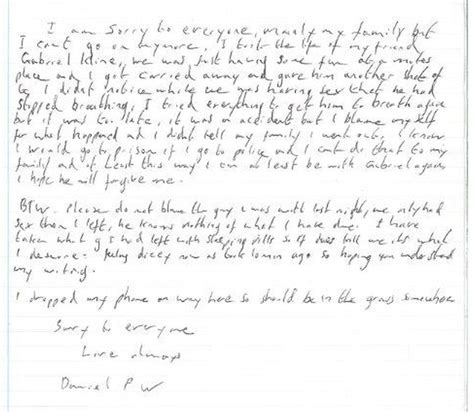 I am sorry to everyone, mainly my family but
I cant go on anymore, I took the life of my friend
Gabriel Kline, we was just having some fun at a mates
place and I got carried away and gave him another shot of
G. I didnt notice while we was having sex that he had
stopped breathing. I tried everything to get him to breath again
but it was to late, it was an accident but I blame myself
for what happened and I didnt tell my family I went out. I know
I would go to prison if I go to police and I cant do that to my
family and at least this way I can at least be with Gabriel again
I hope he will forgive me.
BTW. Please do not blame the guy I was with last night, we only had
sex then I left, he knows nothing of what I have done. I have
taken what g I had left with sleeping pills so if it does kill me its what
I deserve. Feeling dizzy now as took 10 min ago so hoping you understand
my writing.
I dropped my phone on way here so should be in the grass somewhere
Sorry to everyone
Love always
Daniel P W